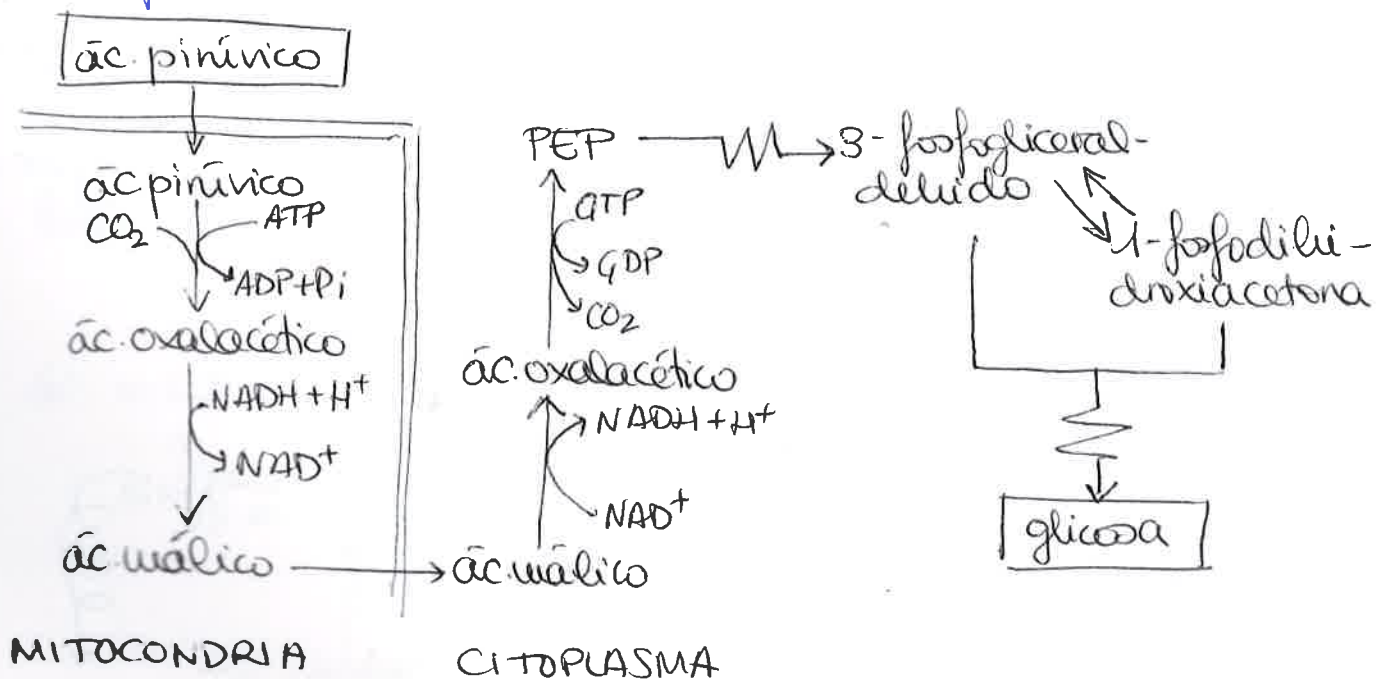 ác. pirúvico
ác pirúvico
CO₂
ATP
ADP+Pi
ác. oxalacético
NADH + H⁺
NAD⁺
ác. málico
MITOCONDRIA
PEP
GTP
GDP
CO₂
ác. oxalacético
NADH + H⁺
NAD⁺
ác. málico
CITOPLASMA
3-fosfogliceral-
dehido
1-fosfodihi-
droxiacetona
glicosa